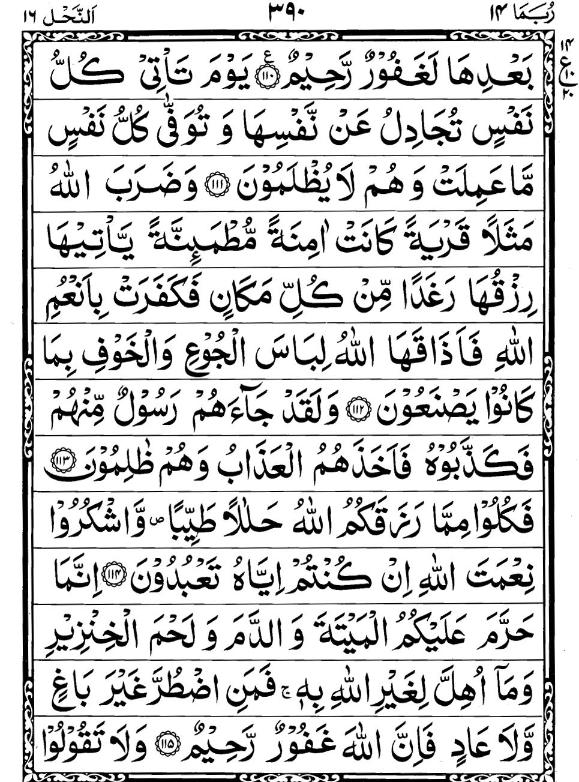 رُبَمَا ١٤ ٣٩٠ اَلنَّحْل ١٦
بَعْدِهَا لَغَفُوْرٌ رَّحِيْمٌ ﴿١١٠﴾ ع يَوْمَ تَاْتِىْ كُلُّ ١٤ ع ١٠ ٢٠
نَفْسٍ تُجَادِلُ عَنْ نَّفْسِهَا وَ تُوَفّٰى كُلُّ نَفْسٍ
مَّا عَمِلَتْ وَ هُمْ لَا يُظْلَمُوْنَ ﴿١١١﴾ وَ ضَرَبَ اللّٰهُ
مَثَلًا قَرْيَةً كَانَتْ اٰمِنَةً مُّطْمَئِنَّةً يَّاْتِيْهَا
رِزْقُهَا رَغَدًا مِّنْ كُلِّ مَكَانٍ فَكَفَرَتْ بِاَنْعُمِ
اللّٰهِ فَاَذَاقَهَا اللّٰهُ لِبَاسَ الْجُوْعِ وَالْخَوْفِ بِمَا
كَانُوْا يَصْنَعُوْنَ ﴿١١٢﴾ وَلَقَدْ جَآءَهُمْ رَسُوْلٌ مِّنْهُمْ
فَكَذَّبُوْهُ فَاَخَذَهُمُ الْعَذَابُ وَهُمْ ظٰلِمُوْنَ ﴿١١٣﴾
فَكُلُوْا مِمَّا رَزَقَكُمُ اللّٰهُ حَلٰلًا طَيِّبًا ص وَّاشْكُرُوْا
نِعْمَتَ اللّٰهِ اِنْ كُنْتُمْ اِيَّاهُ تَعْبُدُوْنَ ﴿١١٤﴾ اِنَّمَا
حَرَّمَ عَلَيْكُمُ الْمَيْتَةَ وَ الدَّمَ وَ لَحْمَ الْخِنْزِيْرِ
وَمَآ اُهِلَّ لِغَيْرِ اللّٰهِ بِهٖ ۚ فَمَنِ اضْطُرَّ غَيْرَ بَاغٍ
وَّلَا عَادٍ فَاِنَّ اللّٰهَ غَفُوْرٌ رَّحِيْمٌ ﴿١١٥﴾ وَلَا تَقُوْلُوْا